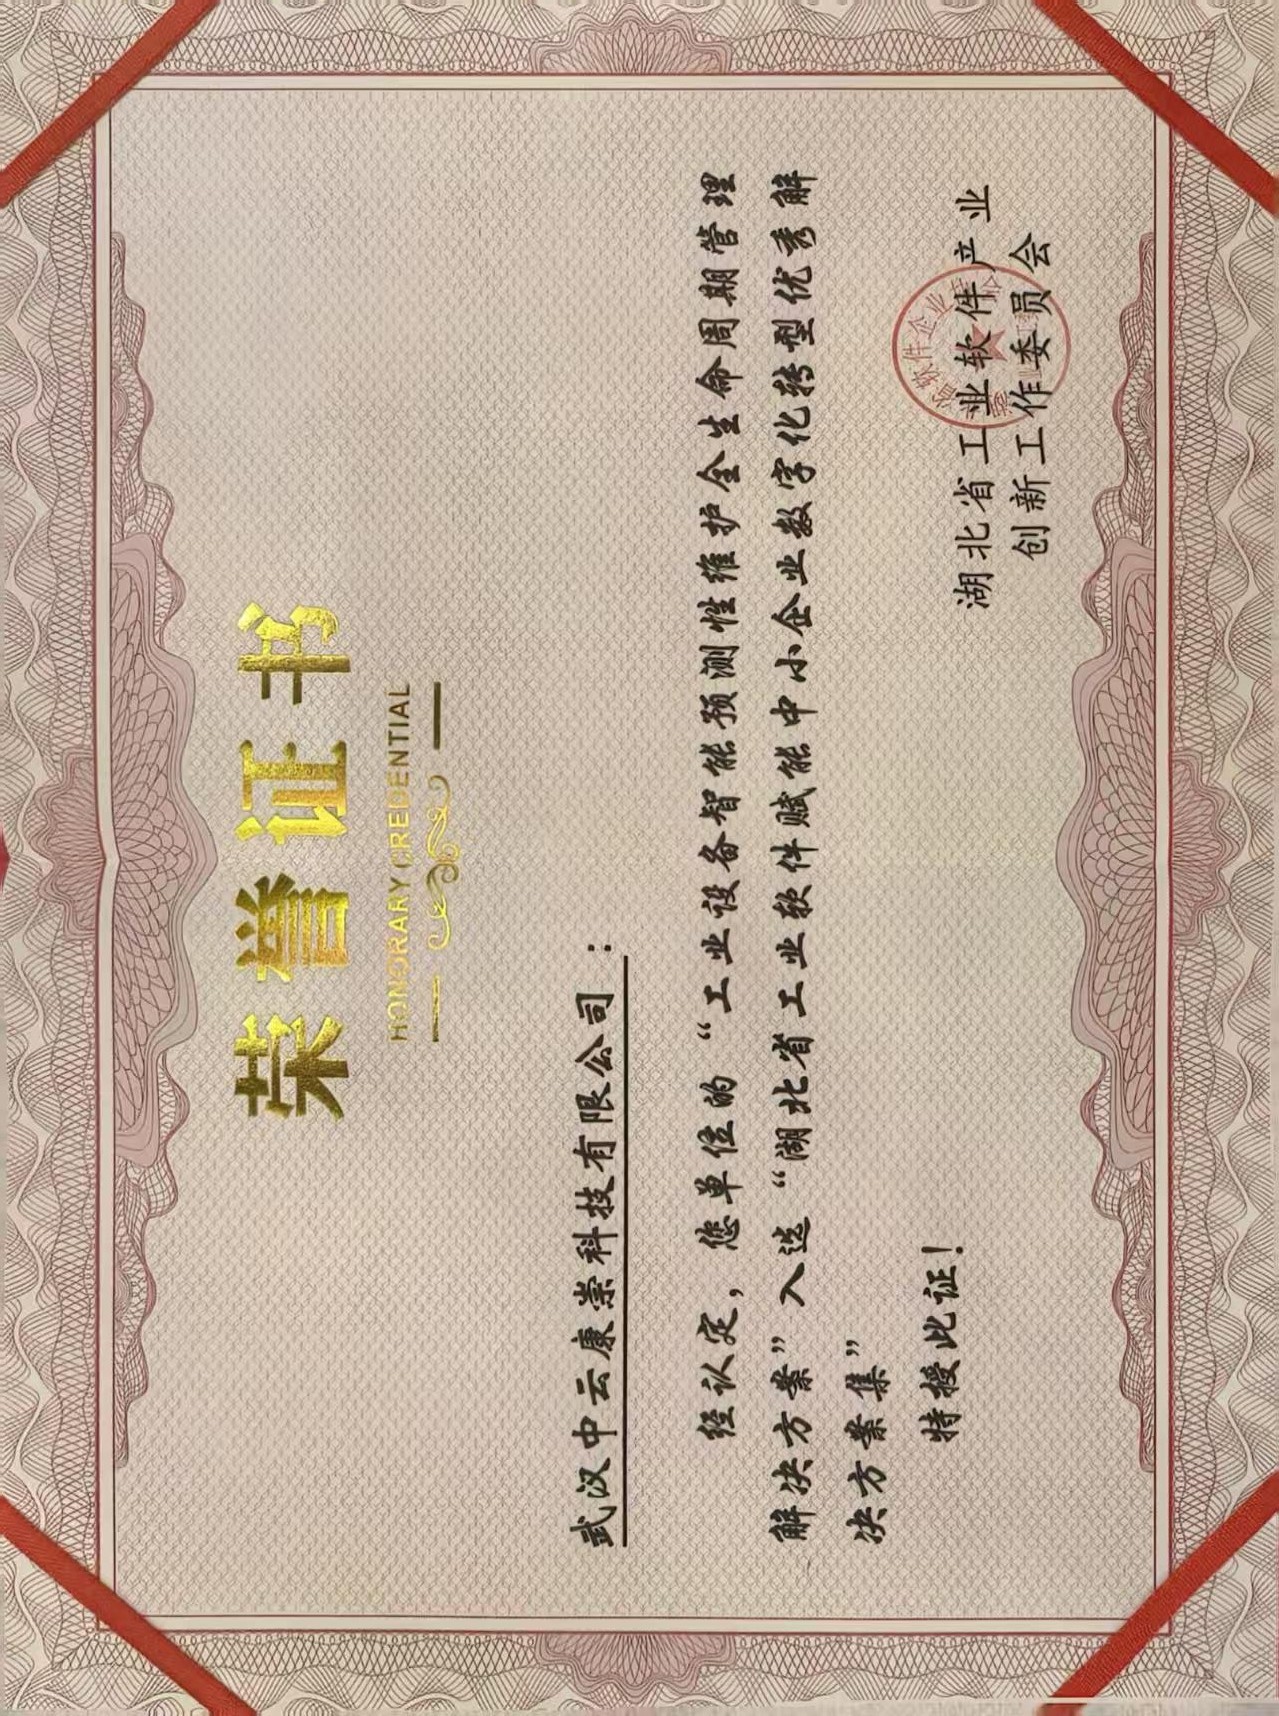 荣誉证书
HONORARY CREDENTIAL
武汉中云康崇科技有限公司：
经认定，您单位的“工业设备智能预测性维护全生命周期管理
解决方案”入选“湖北省工业软件赋能中小企业数字化转型优秀解
决方案集”
特授此证！
湖北省工业软件产业
创新工作委员会
省软件企业